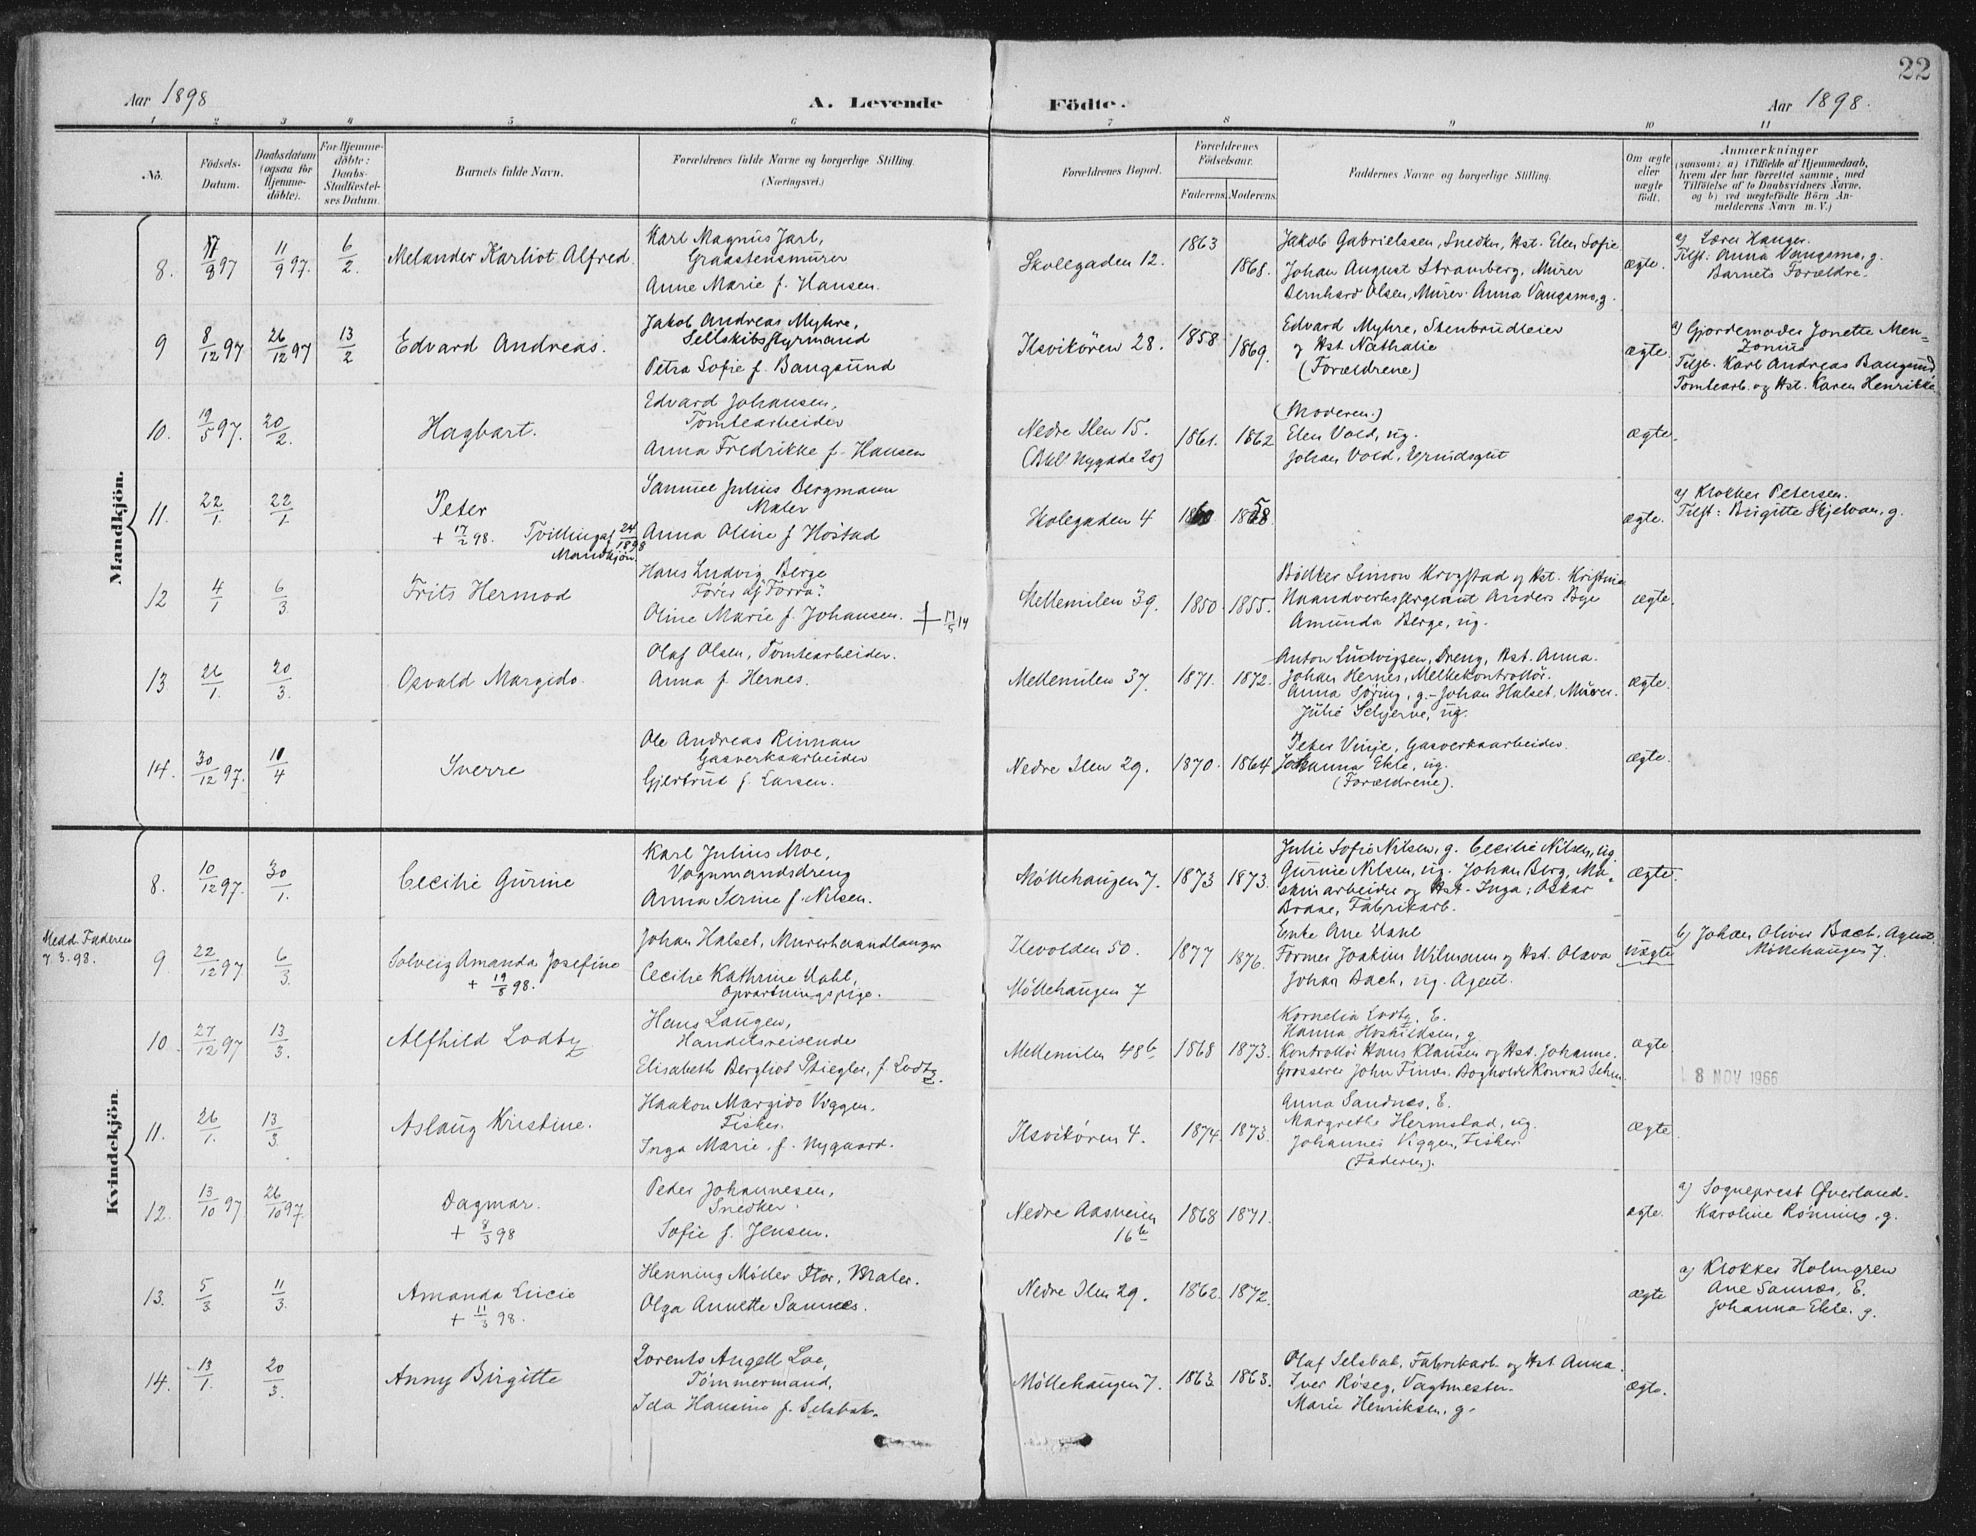 22
Aar 1898
A. Levende
Födte.
Aar 1898.
1 2 3 4 5 6 7 8 9 10 11
No.
Födsels-
Datum.
Daabsdatum
(ogsaa for
Hjemme-
döbte).
For Hjemme-
döbte:
Daabs-
Stadfæstel-
ses Datum.
Barnets fulde Navn.
Forældrenes fulde Navne og borgerlige Stilling.
(Næringsvei.)
Forældrenes Bopæl.
Forældrenes
Födselsaar.
Faderens. Moderens.
Faddernes Navne og borgerlige Stilling.
Om ægte
eller
uægte
födt.
Anmærkninger
(saasom: a) i Tilfælde af Hjemmedaab,
hvem der har forrettet samme, med
Tilföielse af to Daabsvidners Navne,
og b) ved uægtefödte Börn An-
melderens Navn m. V.)
Mandkjön.
8. 17/8 97 11/9 97. 6/2
Melander Karliot Alfred.
Karl Magnus Jarl,
Graastensmurer
Anne Marie f. Hansen.
Skolegaden 12.
1863
1868.
Jakob Gabrielssen, Snedker, Hst. Elen Sofie
Johan August Stramberg, Murer
Bernhard Olsen, Murer. Anna Vangsmo, g.
ægte.
a) Lærer Hanger.
Tilst. Anna Vangsmo, g.
Barnets Forældre.
9 8/12 97 26/12 97 13/2
Edvard Andreas.
Jakob Andreas Myhre,
Seilskibsstyrmand
Petra Sofie f. Bangsund
Ilsvikören 28.
1858
1869.
Edvard Myhre, Stenbrudleier
og Hst Nathalie
(Forældrene)
ægte.
a) Gjordemoder Jonette Men-
Zonius
Tilst. Karl Andreas Bangsund,
Tomtearb. og Hst. Karen Henrikke
10. 19/5 97. 20/2.
Hagbart.
Edvard Johansen,
Tomtearbeider
Anna Fredrikke f. Hansen
Nedre Ilen 15.
(Bkl. Nygade 20)
1861. 1862
(Moderen.)
Elen Vold, ug.
Johan Vold, Grundsgut
ægte.
11. 22/1. 22/1.
Peter
+ 17/2 98.
Tvilling af 24/1898
Mandkjön.
Samuel Julius Bergmann
Maler
Anna Oline f. Høstad
Skolegaden 4
1860 1858
ægte.
a) Klokker Petersen.
Tilst: Birgitte Skjelvan, g.
12 4/1 6/3.
Frits Hermod
Hans Ludvig Berge
Fører af "Forra".
Oline Marie f. Johansen. + 17/5 14
Mellemilen 39.
1850. 1855.
Bödker Simon Krogstad og Hst. Kristina
Haandverkssergeant Anders Bye
Amunda Berge, ug.
ægte.
13 26/1. 20/3.
Osvald Margido.
Olaf Olsen, Tomtearbeider.
Anna f. Hernes.
Mellemilen 37.
1871. 1872.
Anton Ludvigsen, Dreng, Hst. Anna.
Johan Hernes, Melkekontrollör.
Anna Söring, g. - Johan Halset, Murer.
Julie Seljerve, ug.
ægte.
14. 30/12 97. 10/4
Sverre
Ole Andreas Rinnan
Gasverksarbeider
Gjertrud f. Larsen.
Nedre Ilen 29.
1870. 1864.
Peter Vinje, Gasverksarbeider.
Johanna Ekle, ug.
(Forældrene).
ægte.
Kvindekjön.
8. 10/12 97. 30/1.
Cecilie Gurine
Karl Julius Moe,
Vognmandsdreng
Anna Serine f. Nilsen.
Møllehaugen 7.
1873 1873.
Julie Sofie Nilsen, g. Cecilie Nilsen, ug
Gurine Nilsen, ug. Johan Berg, Ma-
skinarbeider og Hst. Inga; Oskar
Braae, Fabrikarb.
ægte.
Medd. Faderen
7.3.98.
9. 22/12 97 6/3.
Solveig Amanda Josefine
+ 19/8 98.
Johan Halset, Murerhaandlanger
Cecilie Kathrine Vahl,
Opvartningspige.
Ilevolden 50.
Møllehaugen 7
1877 1876.
Enke Ane Vahl
Former Joakim Wilmann og Hst. Olava
Johan Bach, ug. Agent.
uægte
b) Johan Oliver Bach, Agent,
Møllehaugen 7.
10. 27/12 97 13/3.
Alfhild Lodtz
Hans Laugen,
Handelsreisende
Elisabeth Bergliot Stiegler, f. Lodtz.
Mellemilen 48b
1868 1873.
Kornelia Lodtz, E.
Hanna Hoshildsen, g
Kontrollör Hans Klausen og Hst. Johanne.
Grosserer John Finne. Bogholder Konrad Sehm.
ægte
8 NOV 1966
11. 26/1. 13/3.
Aslaug Kristine.
Haakon Margido Viggen,
Fisker.
Inga Marie, f. Nygaard.
Ilsvikören 4.
1874. 1873.
Anna Sandnes, E.
Margrethe Hermstad, ug.
Johannes Viggen, Fisker
(Faderen).
ægte.
12. 13/10 97. 26/10 97.
Dagmar.
+ 8/3 98
Peder Johannesen,
Snedker.
Sofie f. Jensen.
Nedre Aasveien
16b
1868 1871.
ægte.
a) Sogneprest Øverland.
Karoline Rønning, g.
13. 5/3 11/3.
Amanda Lucie
+ 11/3 98.
Henning Möller Flor, Maler.
Olga Annette Sannes.
Nedre Ilen 29.
1862. 1872.
ægte
a) Klokker Holmgren
Ane Sannæs, E.
Johanna Ekle. g.
14. 13/1. 20/3.
Anny Birgitte
Lorents Angell Loe,
Tømmermand,
Ida Hansine f. Selsbak.
Møllehaugen 7.
1863. 1863.
Olaf Selsbak, Fabrikarb. og Hst. Anna.
Iver Röseg, Vagtmester.
Marie Henriksen, g.
ægte.